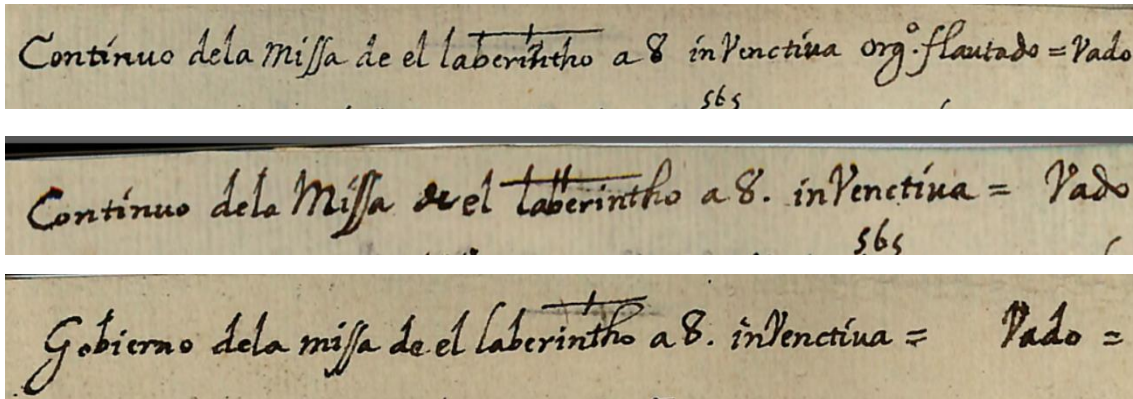 Continuo dela Missa de el laberintho a 8 inVenctiua orgº. flautado = Vado
565
Continuo dela Missa de el laberintho a 8. inVenctiua = Vado
565
Gobierno dela missa de el laberintho a 8. inVenctiua = Vado =